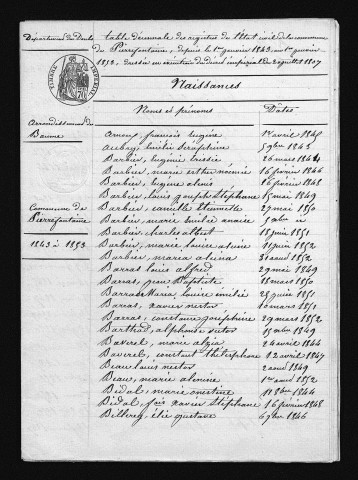 Département du Doubs
table décennale des registres de l'état civil de la commune
de Pierrefontaine, depuis le 1er janvier 1843 au 1er janvier
1853, dressée en exécution du décret impérial du 20 juillet 1807
TIMBRE IMPERIAL
Naissances
Noms et prénoms Dates
Arrondissement de
Baume
Commune de
Pierrefontaine
1843 à 1853
Arnoux, françois eugène 1er avril 1848
Aubry, Emilie séraphine 5 9bre 1843
Barbier, eugénie 26 mars 1844
Barbier, marie esther noémie 16 février 1846
Barbier, eugène alexis 16 février 1848
Barbier, louis joseph Stéphane 15 mai 1849
Barbier, camille 29 mai 1850
Barbier, marie émilie anaïse 5 9bre
Barbier, charles albert 18 juin 1851
Barbier, marie louise 11 juin 1852
Barbier, maria alexina 31 aout 1852
Barras louis alfred 29 mai 1849
Barras, jean Baptiste 18 mars 1850
Barras Maria louise émilie 25 juin 1851
Barras, xavier nestor mars 1851
Barras, constance joséphine 29 mars 1852
Barthod, alphonse victor 15 1849
Baverel, marie alzia 24 avril 1844
Baverel, constant théléséphore 12 avril 1847
Beau louis nestor 2 aout 1849
Beau, maria 1er aout 1852
Bidal, maria ernestine 8bre 1844
Bidal, fois xavier Stéphane 16 février 1848
élie gustave 6 9bre 1846